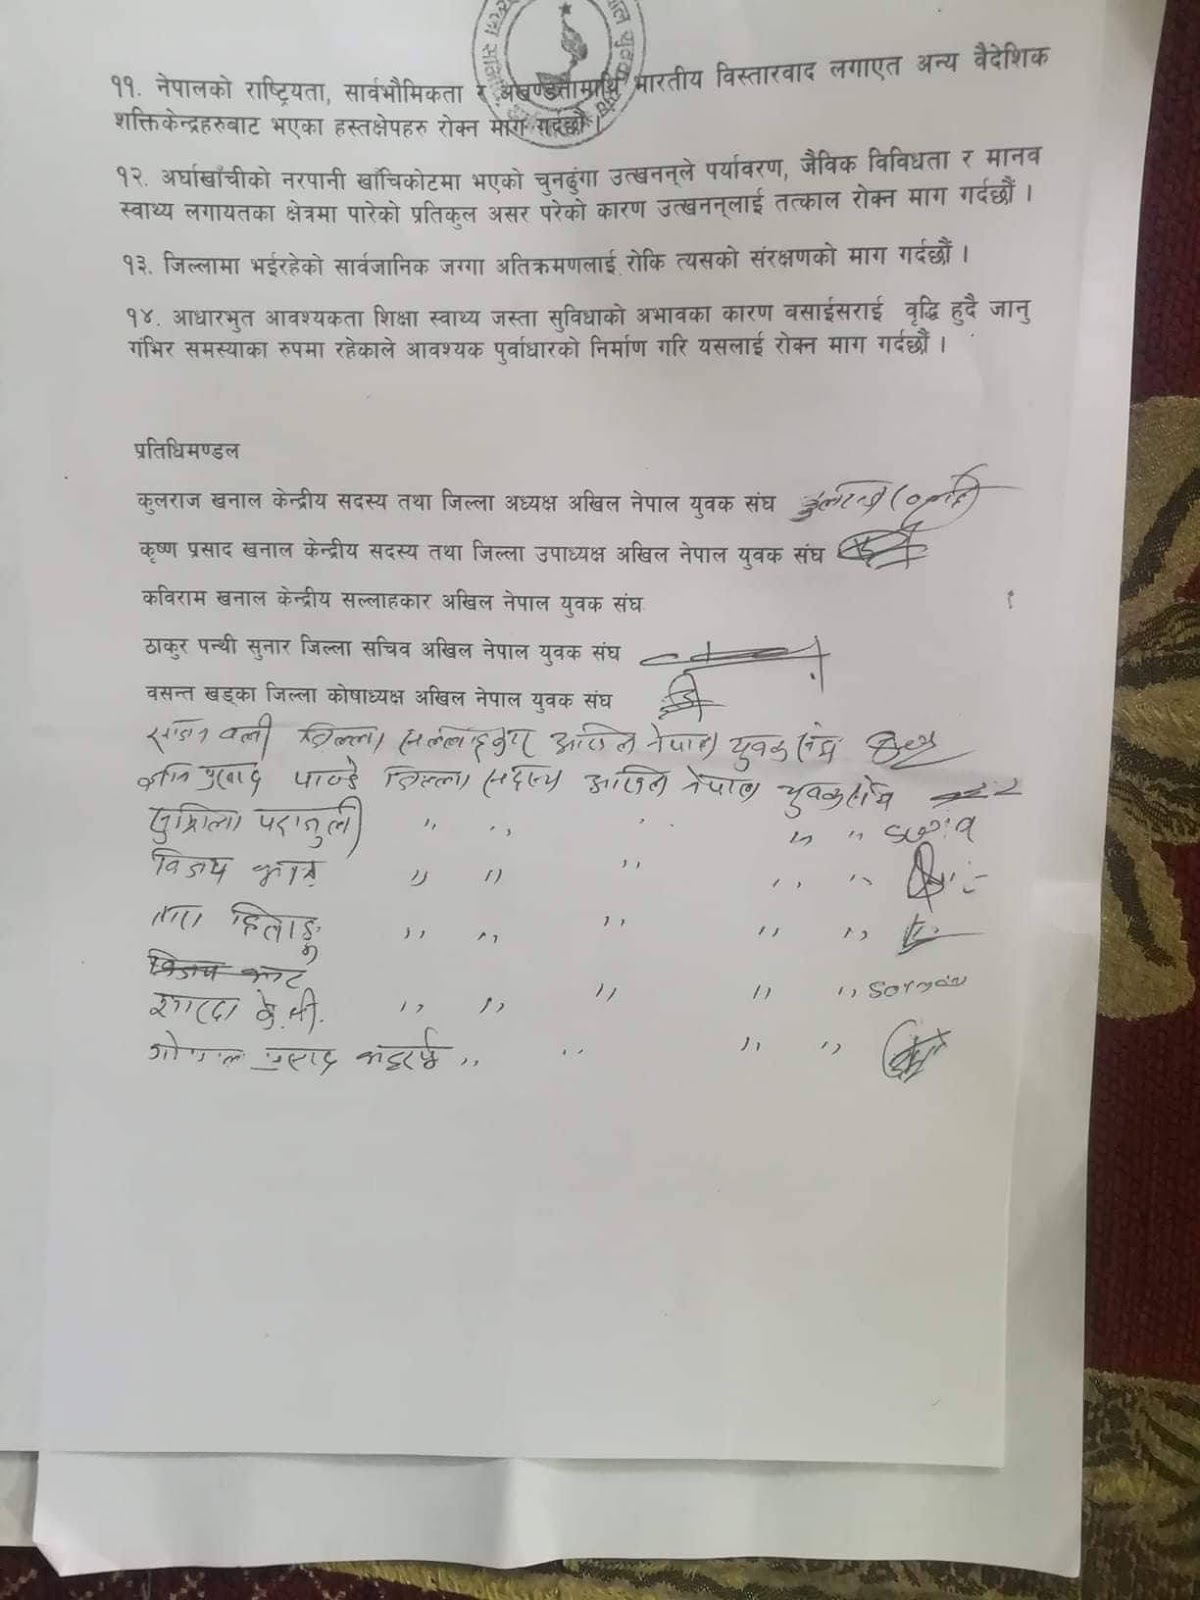 ११. नेपालको राष्ट्रियता, सार्वभौमिकता र अखण्डतामाथि भारतीय विस्तारवाद लगाएत अन्य वैदेशिक
शक्तिकेन्द्रहरुबाट भएका हस्तक्षेपहरु रोक्न माग गर्दछौं ।
१२. अर्घाखाँचीको नरपानी खाँचिकोटमा भएको चुनढुंगा उत्खनन्ले पर्यावरण, जैविक विविधता र मानव
स्वाथ्य लगायतका क्षेत्रमा पारेको प्रतिकुल असर परेको कारण उत्खनन्लाई तत्काल रोक्न माग गर्दछौं ।
१३. जिल्लामा भईरहेको सार्वजानिक जग्गा अतिक्रमणलाई रोकि त्यसको संरक्षणको माग गर्दछौं ।
१४. आधारभुत आवश्यकता शिक्षा स्वाथ्य जस्ता सुविधाको अभावका कारण बसाईसराई वृद्धि हुदै जानु
गंभिर समस्याका रुपमा रहेकाले आवश्यक पुर्वाधारको निर्माण गरि यसलाई रोक्न माग गर्दछौं ।
प्रतिधिमण्डल
कुलराज खनाल केन्द्रीय सदस्य तथा जिल्ला अध्यक्ष अखिल नेपाल युवक संघ
कृष्ण प्रसाद खनाल केन्द्रीय सदस्य तथा जिल्ला उपाध्यक्ष अखिल नेपाल युवक संघ
कविराम खनाल केन्द्रीय सल्लाहकार अखिल नेपाल युवक संघ
ठाकुर पन्थी सुनार जिल्ला सचिव अखिल नेपाल युवक संघ
वसन्त खड्का जिल्ला कोषाध्यक्ष अखिल नेपाल युवक संघ
वली जिल्ला सल्लाहकार अखिल नेपाल युवक संघ
प्रसाद पाण्डे जिल्ला सदस्य अखिल नेपाल युवक संघ
" " " " "
विजय " " " " "
तारा " " " " "
विजय
शारदा के.सी. " " " " "
गोपाल प्रसाद भट्टराई " " " "